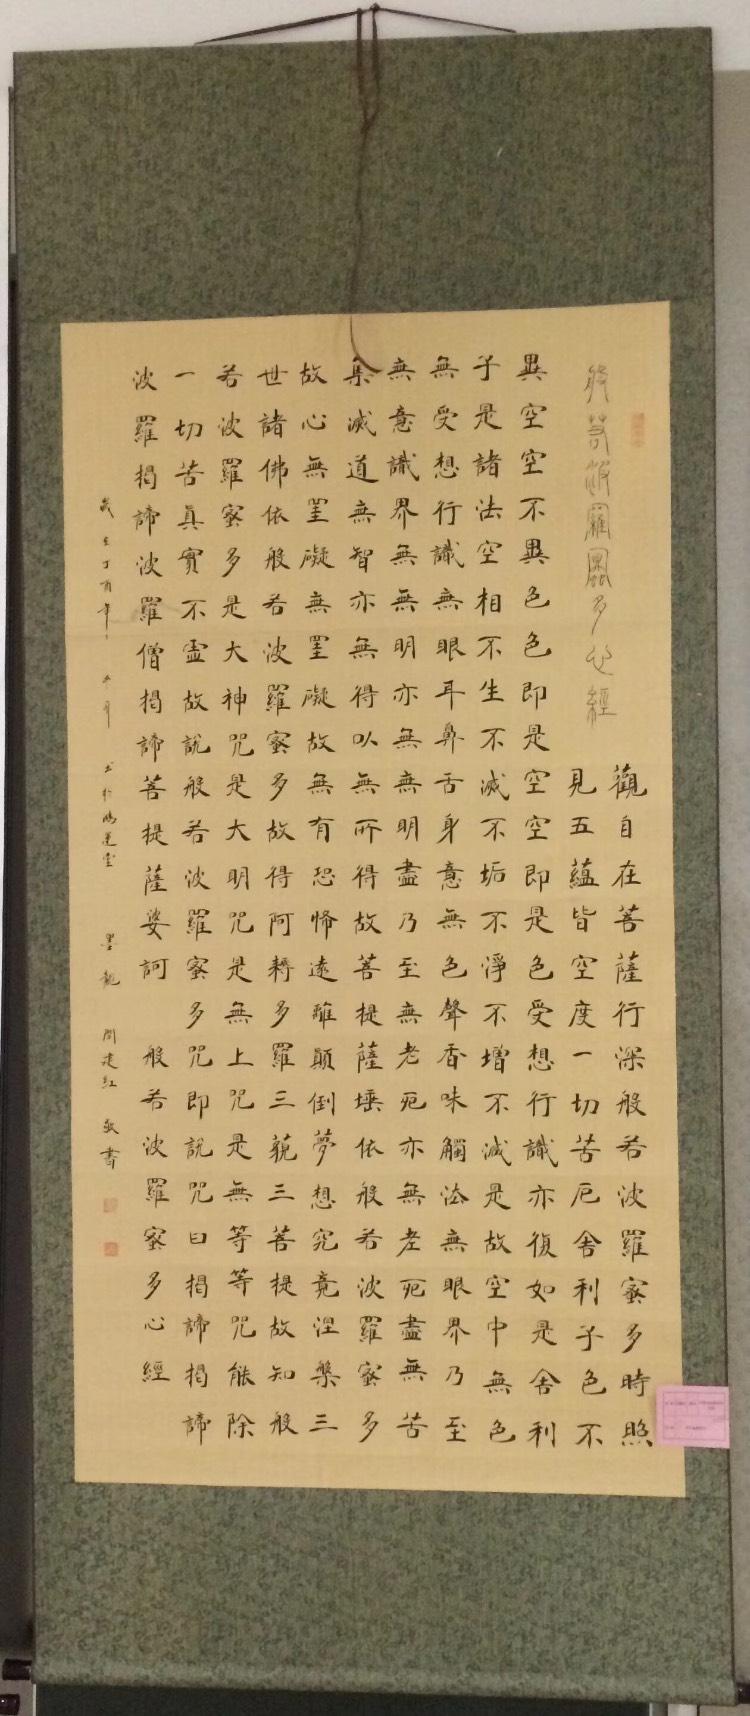 般若波羅蜜多心經
觀自在菩薩行深般若波羅蜜多時照
見五蘊皆空度一切苦厄舍利子色不
異空空不異色色即是空空即是色受想行識亦復如是舍利
子是諸法空相不生不滅不垢不淨不增不減是故空中無色
無受想行識無眼耳鼻舌身意無色聲香味觸法無眼界乃至
無意識界無無明亦無無明盡乃至無老死亦無老死盡無苦
集滅道無智亦無得以無所得故菩提薩埵依般若波羅蜜多
故心無罣礙無罣礙故無有恐怖遠離顛倒夢想究竟涅槃三
世諸佛依般若波羅蜜多故得阿耨多羅三藐三菩提故知般
若波羅蜜多是大神咒是大明咒是無上咒是無等等咒能除
一切苦真實不虛故說般若波羅蜜多咒即說咒曰揭諦揭諦
波羅揭諦波羅僧揭諦菩提薩婆訶 般若波羅蜜多心經
歲在丁酉年 書於 墨龍 閆建紅 敬書